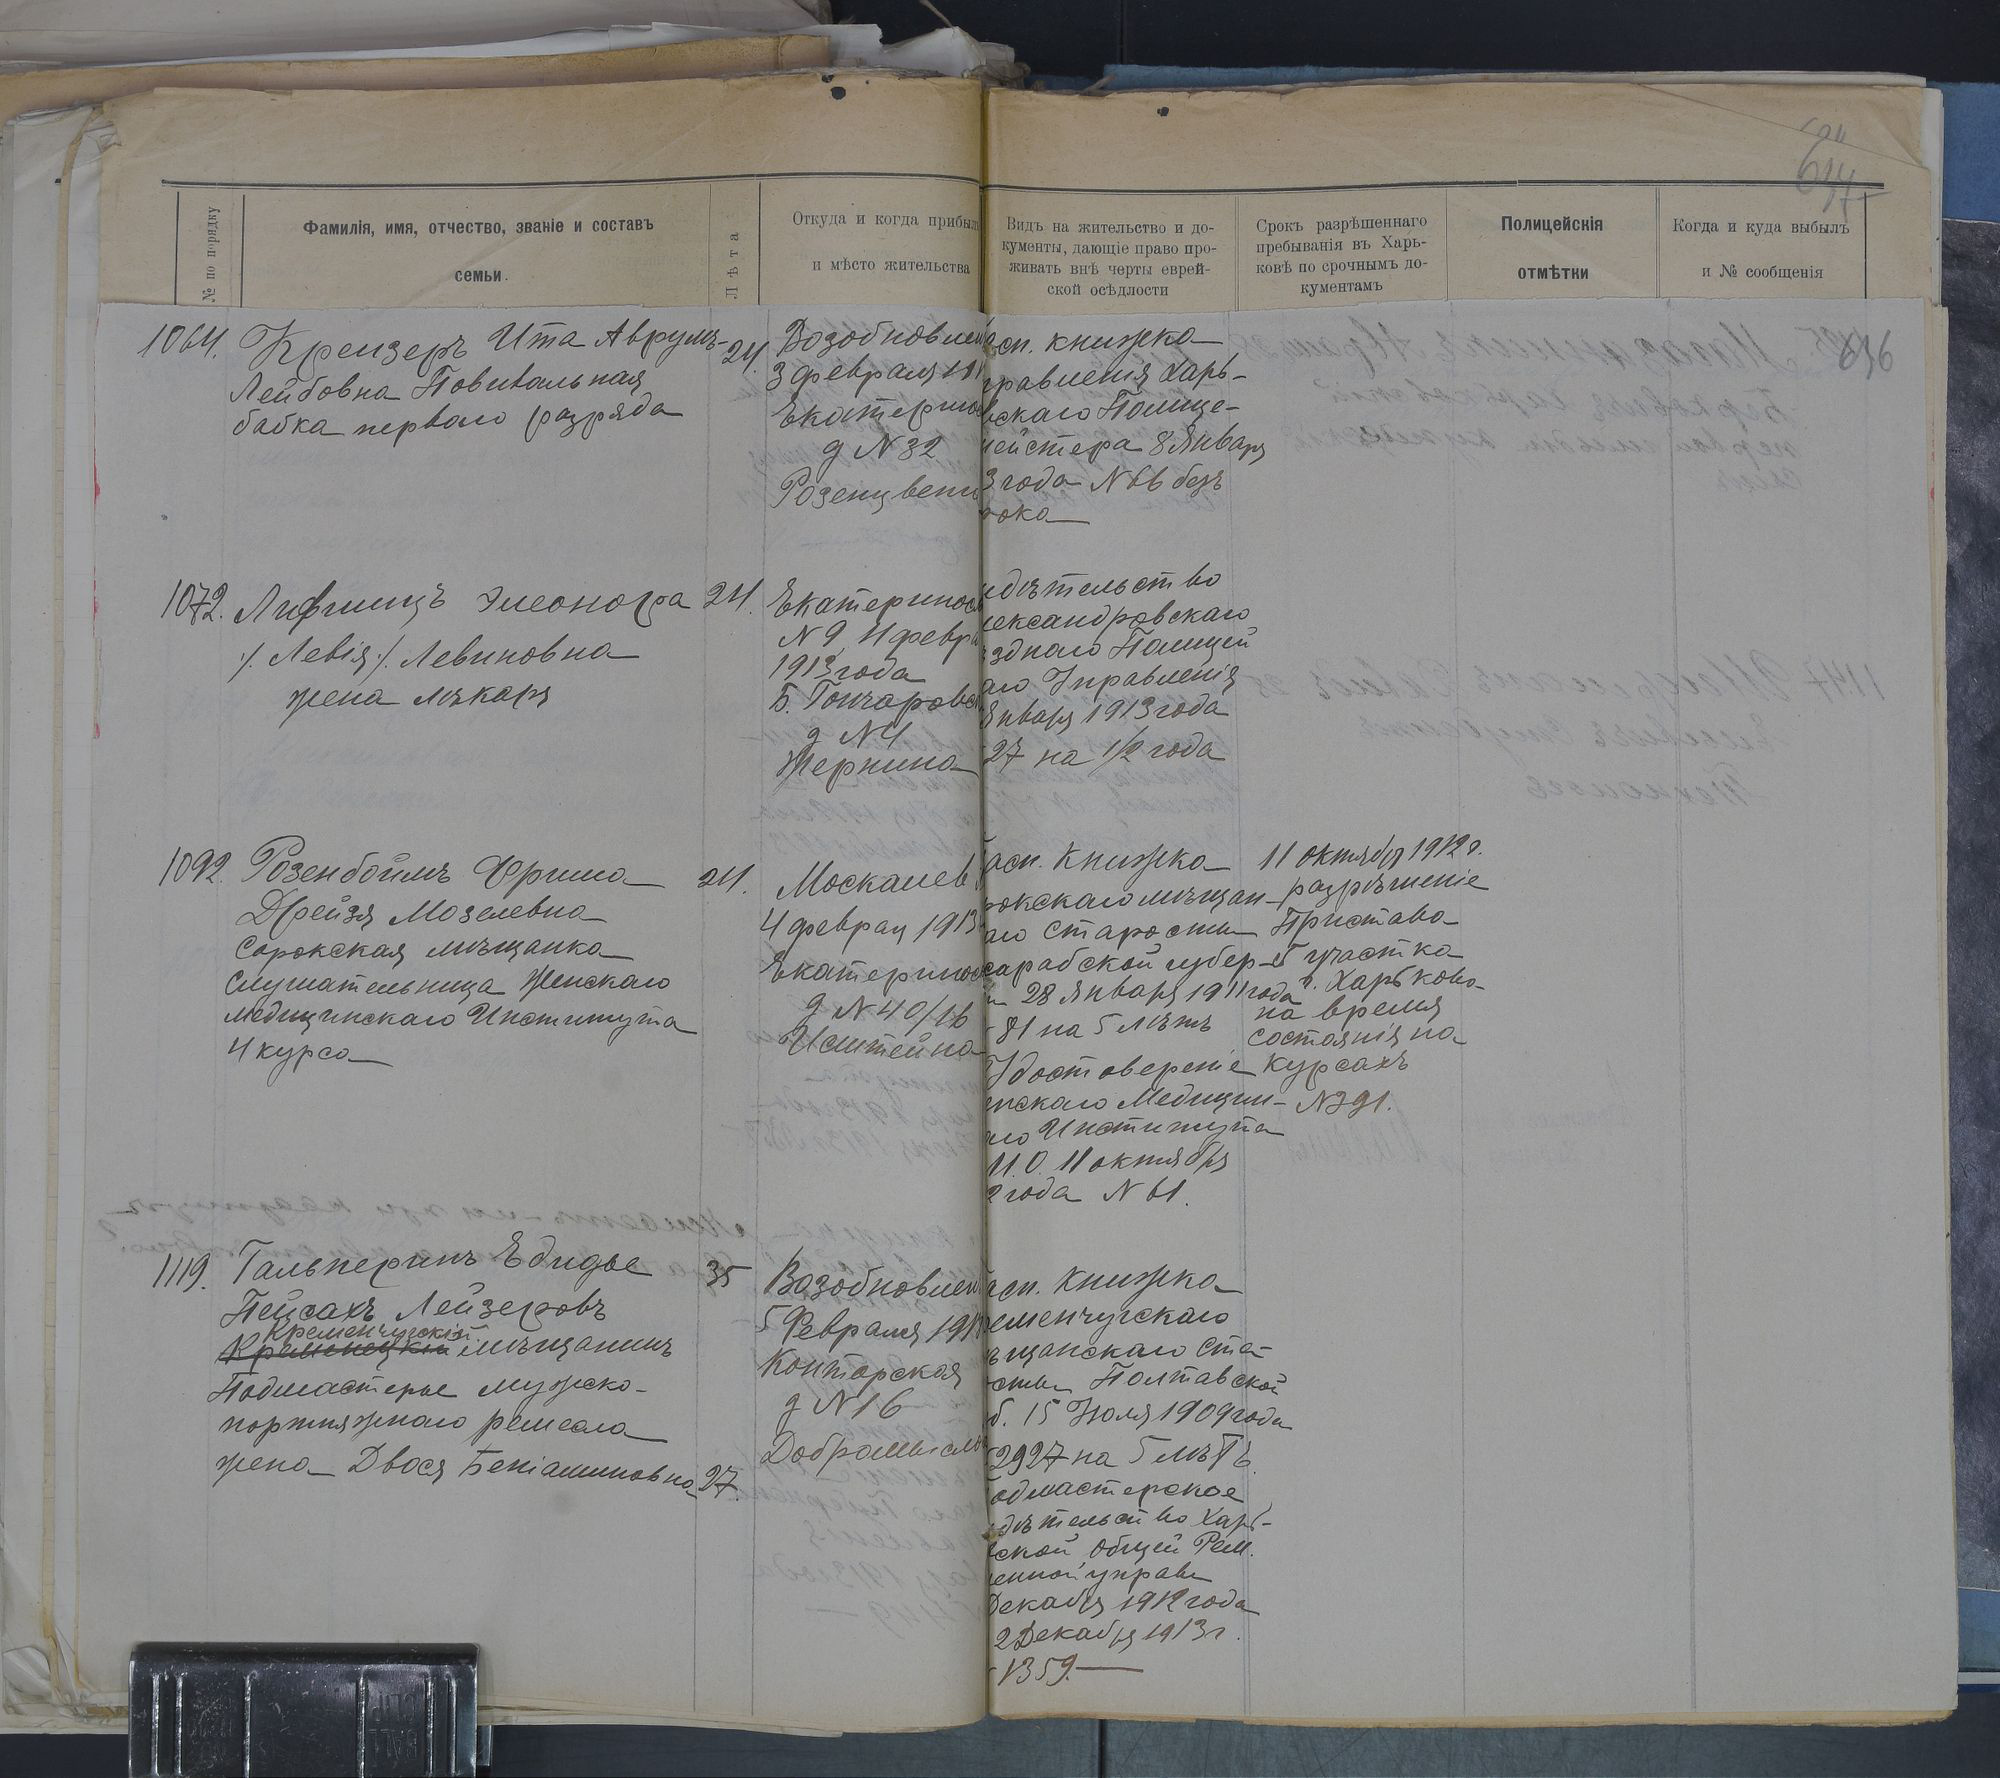 № по порядку
Фамилія, имя, отчество, званіе и составъ
семьи.
Лѣта
Откуда и когда прибыл
и мѣсто жительства
Видъ на жительство и до-
кументы, дающіе право про-
живать внѣ черты еврей-
ской осѣдлости
Срокъ разрѣшеннаго
пребыванія въ Харь-
ковѣ по срочнымъ до-
кументамъ
Полицейскія
отмѣтки
Когда и куда выбылъ
и № сообщенія
1064. Крейзеръ Ита Аврумъ- 24.
Лейбовна Повивальная
бабка перваго разряда
Возобновлен
3 февраля 191
Екатеринос
д № 32
Розенцвейг
асп. книжка
правленія Харь-
вскаго Полице-
мейстера 8 Января
3 года № 66 безъ
рока
1072. Лифшицъ Элеонора 24.
/. Левія ./. Левиновна
жена лѣкаря
Екатеринос
№ 9, 4 февра
1913 года
Б. Гончаровс
д № 4
Жернина
идѣтельство
лександровскаго
ѣзднаго Полицей
аго Управленія
Января 1913 года
27 на 1/2 года
1092. Розенбоймъ Фрима 24.
Дрейзя Мозелевна
Сорокская мѣщанка
Слушательница Женскаго
Медицинскаго Института
4 курса
Москалев
4 феврал 1913
Екатеринос
д № 40/16
асп. Книжка
рокскаго мѣщан-
аго Старосты
сарабской губер-
28 Января 1911 года
81 на 5 лѣтъ
Удостовереніе
нскаго Медицин-
го Института
Х.М.О. 11 октября
2 года № 61.
11 октября 1912 г.
разрѣшеніе
Пристава
5 участка
г. Харькова
на время
состоянія на
курсахъ
№ 391.
1119. Гальперинъ Едидье 35
Пейсахъ Лейзеровъ
Кременчугскій
Кременецкій мѣщанинъ
Подмастерье мужско-
портняжнаго ремесла
жена Двося Беніаминовна 27.
Возобновлен
5 Февраля 191
Конторская
д № 16
Добромысло
асп. Книжка
ременчугскаго
ѣщанскаго Ста-
осты Полтавской
б. 15 Іюля 1909 года
2927 на 5 лѣтъ.
одмастерское
идѣтельство Харь-
ской Общей Рем.
енной управы
Декабря 1912 года
2 Декабря 1913 г.
1359.